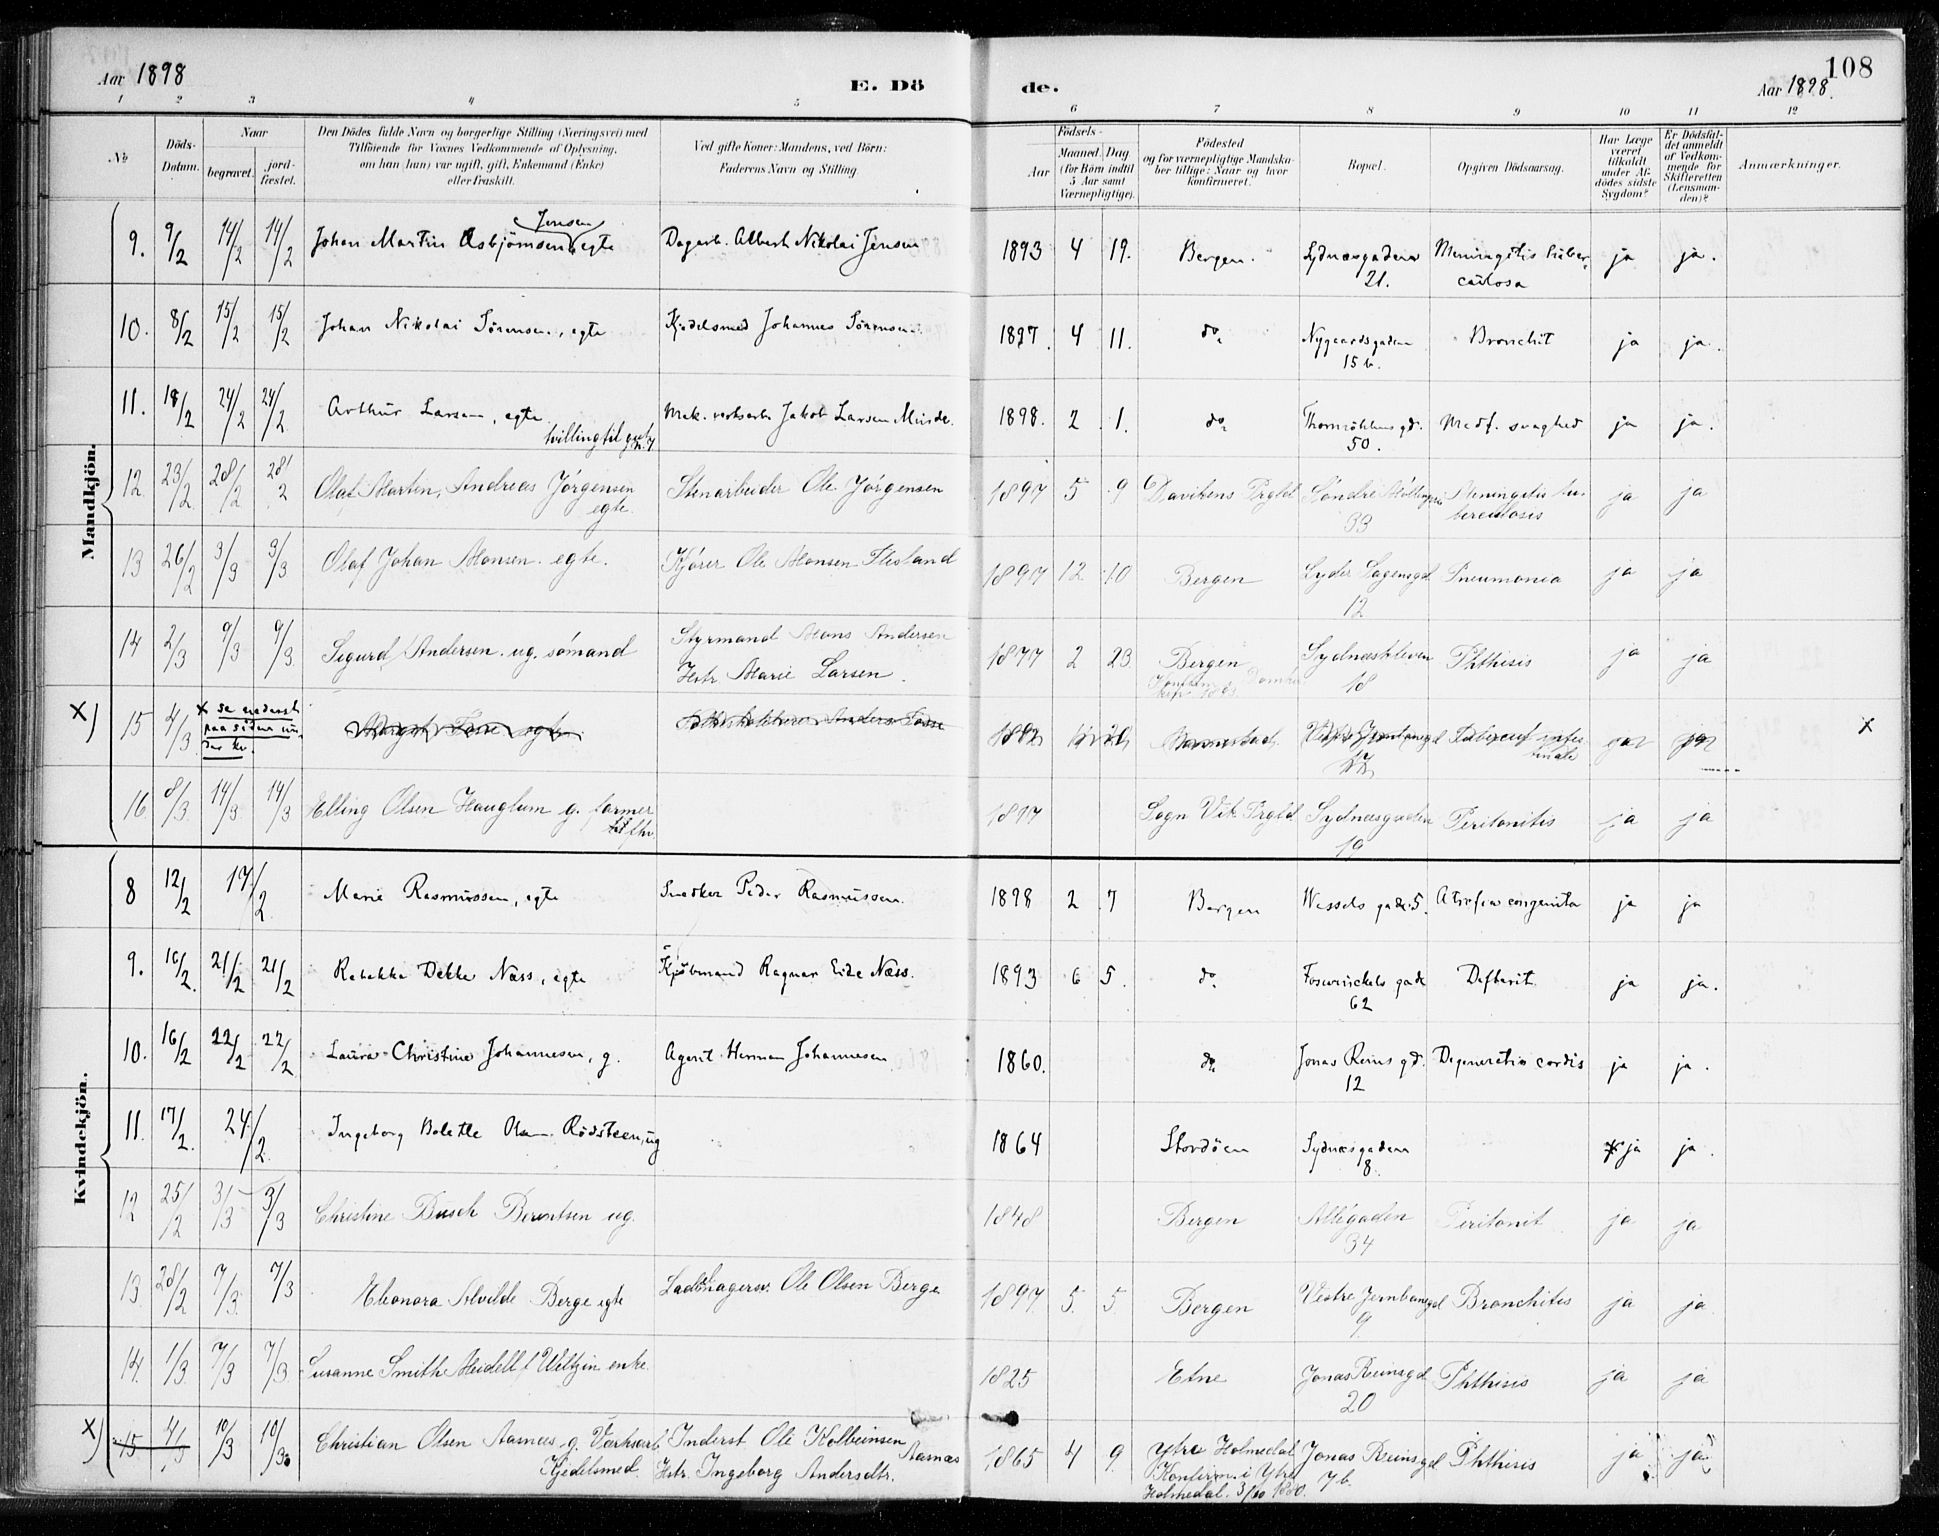 Aar 1898
E. Dö
de.
Aar 1898.
108
1 2 3 4 5 6 7 8 9 10 11 12
№
Döds-Datum.
Naar
begravet.
jord-fæstet.
Den Dödes fulde Navn og borgerlige Stilling (Næringsvei) med
Tilföiende for Voxnes Vedkommende af Oplysning,
om han (hun) var ugift, gift, Enkemand (Enke)
eller fraskilt.
Ved gifte Koner: Mandens, ved Börn:
Faderens Navn og Stilling
Födsels-
Aar
Maaned. Dag
(for Börn indtil
5 Aar samt
Værnepligtige).
Födested
og for værnepligtige Mandska-
ber tillige: Naar og hvor
konfirmeret.
Bopæl.
Opgiven Dödsaarsag.
Har Læge
været
tilkaldt
under Af-
dödes sidste
Sygdom?
Er Dödsfal-
det anmeldt
af Vedkom-
mende for
Skifteretten
(Lensman-
den)?
Anmærkninger.
Mandkjön.
Jensen
9. 9/2 14/2 14/2 Johan Martin Asbjörnsen egte Dagarb. Albert Nikolai Jensen 1893 4 19. Bergen. Sydnæsgaden Meningitis tuber- ja ja.
21. culosa
10. 8/2 15/2 15/2 Johan Nikolai Sörensen, egte Kjedelsmed Johannes Sörensen. 1897. 4 11. do. Nygaardsgaden Bronchit ja ja.
15 b.
11. 18/2 24/2 24/2 Arthur Larsen, egte Mek. verksarb. Jakob Larsen Minde. 1898. 2 1. do. Thormöhlens gd. Medf. svaghed ja ja.
tvilling til 50.
12. 23/2 28/2 28/2 Olaf Marten, Andreas Jörgensen Stenarbeider Ole Jörgensen 1897 5 9 Davikens Prgld Söndre Meningitis tu- ja ja
egte. 33 berculosis
13 26/2 3/3 3/3 Olaf Johan Monsen. egte. Kjörer Ole Monsen Flesland 1897 12 10 Bergen Lyder Sagensgd Pneumonia ja ja
12
14 2/3 9/3 9/3 Sigurd Andersen. ug. sömand Styrmand Mons Andersen 1877 2 23. Bergen Sydnæskleven Phthisis ja ja
Hstr Marie Larsen. 18
X) 15 4/3 x se nederst
paa siden un-
der kv.
egte 1882 X
17
16 8/3 14/3 14/3 Elling Olsen Hauglum g. former Sogn Vik Prgld Sydnæsgaden Peritonitis ja ja
19
Kvindekjön.
8 12/2 17/2 Marie Rasmussen, egte Snedker Peder Rasmussen. 1898 2 7 Bergen Wessels gade 5. Atrofia congenita ja ja
9. 16/2. 21/2 21/2 Rebekka Dekke Næss, egte Kjöbmand Ragnar Eide Næss. 1893 6 5. do Foswinckels gade Defterit ja ja.
62
10. 16/2 22/2 22/2 Laura Christine Johannesen, g. Agent Herman Johannesen 1860. do. Jonas Reins gd. Degeneratio cordis ja ja.
12
11. 17/2. 24/2 Ingeborg Bolette Olsen Rödsteen, ug 1864 Stordöen Sydnæsgaden ja ja.
8.
12 25/2 3/3 3/3 Christine Busch Berentsen ug. 1848 Bergen Allégaden Peritonit ja ja
34
13. 28/2 7/3. 7/3 Eleonora Alvilde Berge egte Ole Olsen Berge 1897. 5. 5. Bergen Vestre Jernbanegd Bronchitis ja ja
9.
14. 1/3. 7/3 7/3 Susanne Smithe Meidell f Weltzin enke 1825 Etne Jonas Reinsgd Phthisis ja ja
20
X) 15 4/3 10/3 10/3. Christian Olsen Aasnes g. Verksarb. Inderst Ole Kolbeinsen Aasnæs 1865 4 9. Ytre Holmedal Jonas Reinsgd Phthisis ja ja
Kjedelsmed. Hstr. Ingeborg Andersdtr. Konfirm. i Ytre 7 b.
Holmedal. 3/10 1880.